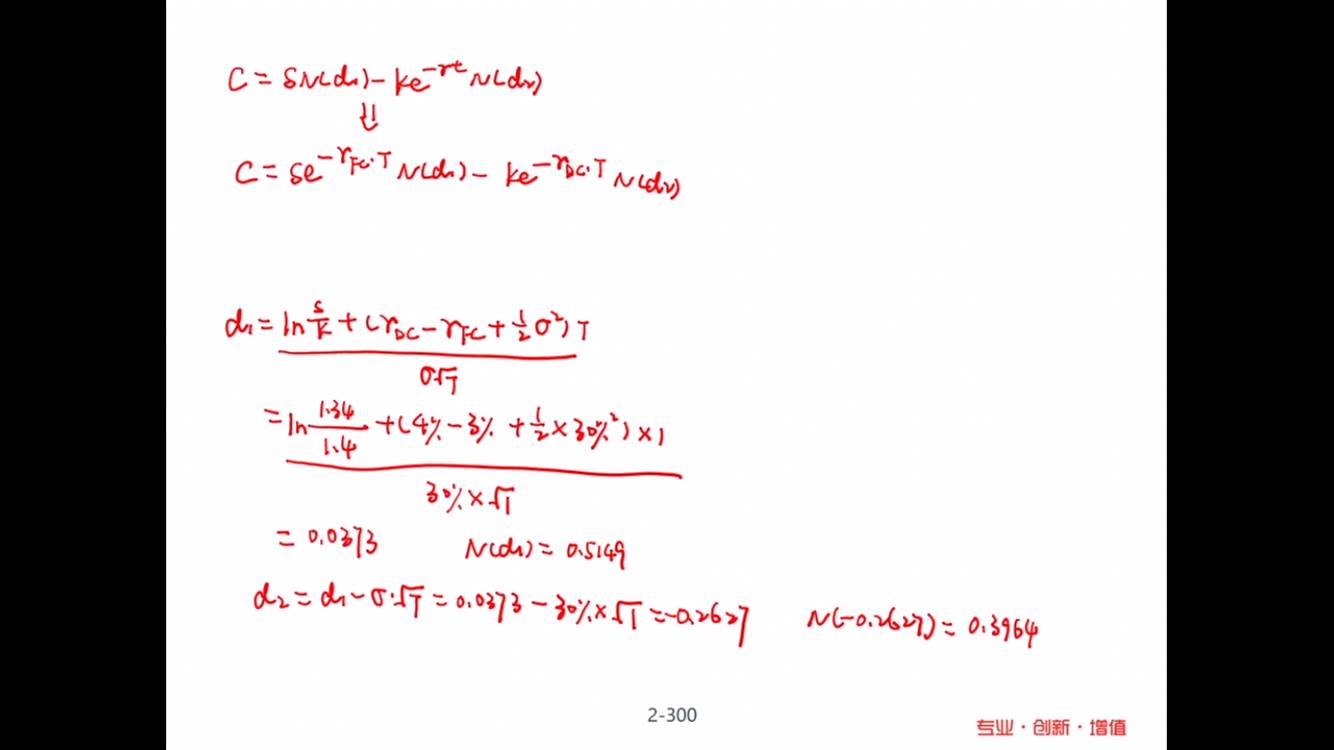 C = SN(d₁) - Ke^{-rt} N(d₂)
⇓
C = Se^{-r_{FC}·T} N(d₁) - Ke^{-r_{DC}·T} N(d₂)
d₁ = ln S/K + (r_{DC} - r_{FC} + 1/2 σ²) T
σ√T
= ln 1.34/1.4 + (4% - 3% + 1/2 × 30%²) × 1
30% × √1
= 0.0373 N(d₁) = 0.5149
d₂ = d₁ - σ·√T = 0.0373 - 30% × √1 = -0.2627 N(-0.2627) = 0.3964
2-300
专业·创新·增值